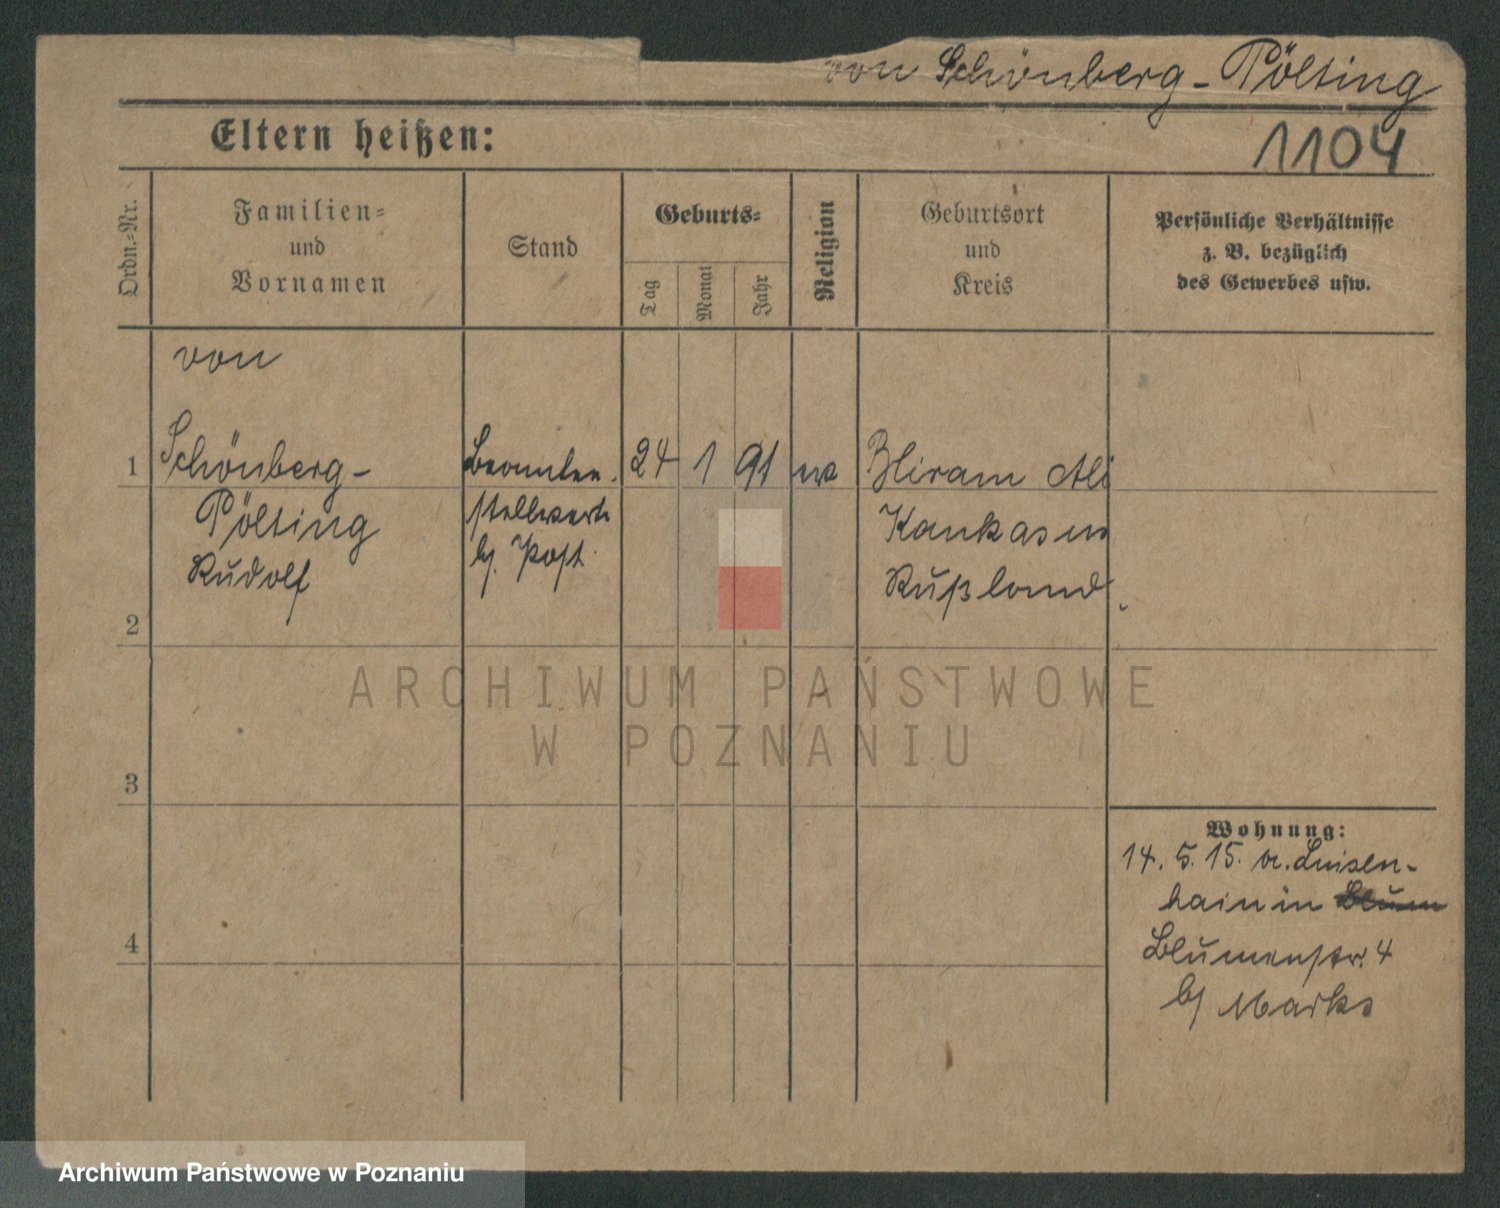 von Schönberg-Pölting
Eltern heißen:
1104
Ordn.-Nr.
Familien-
und
Vornamen
Stand
Geburts-
Tag
Monat
Jahr
Religion
Geburtsort
und
Kreis
Persönliche Verhältnisse
z. B. bezüglich
des Gewerbes usw.
von
1 Schönberg- Beamten. 24 1 91 Ali
Pölting stellvertr. Kaukasus
Rudolf b. Post. Rußland.
2
3
4
Wohnung:
14. 5. 15. Luisen-
hain in Blum
Blumenstr. 4
b/ Marks
ARCHIWUM PAŃSTWOWE
W POZNANIU
Archiwum Państwowe w Poznaniu